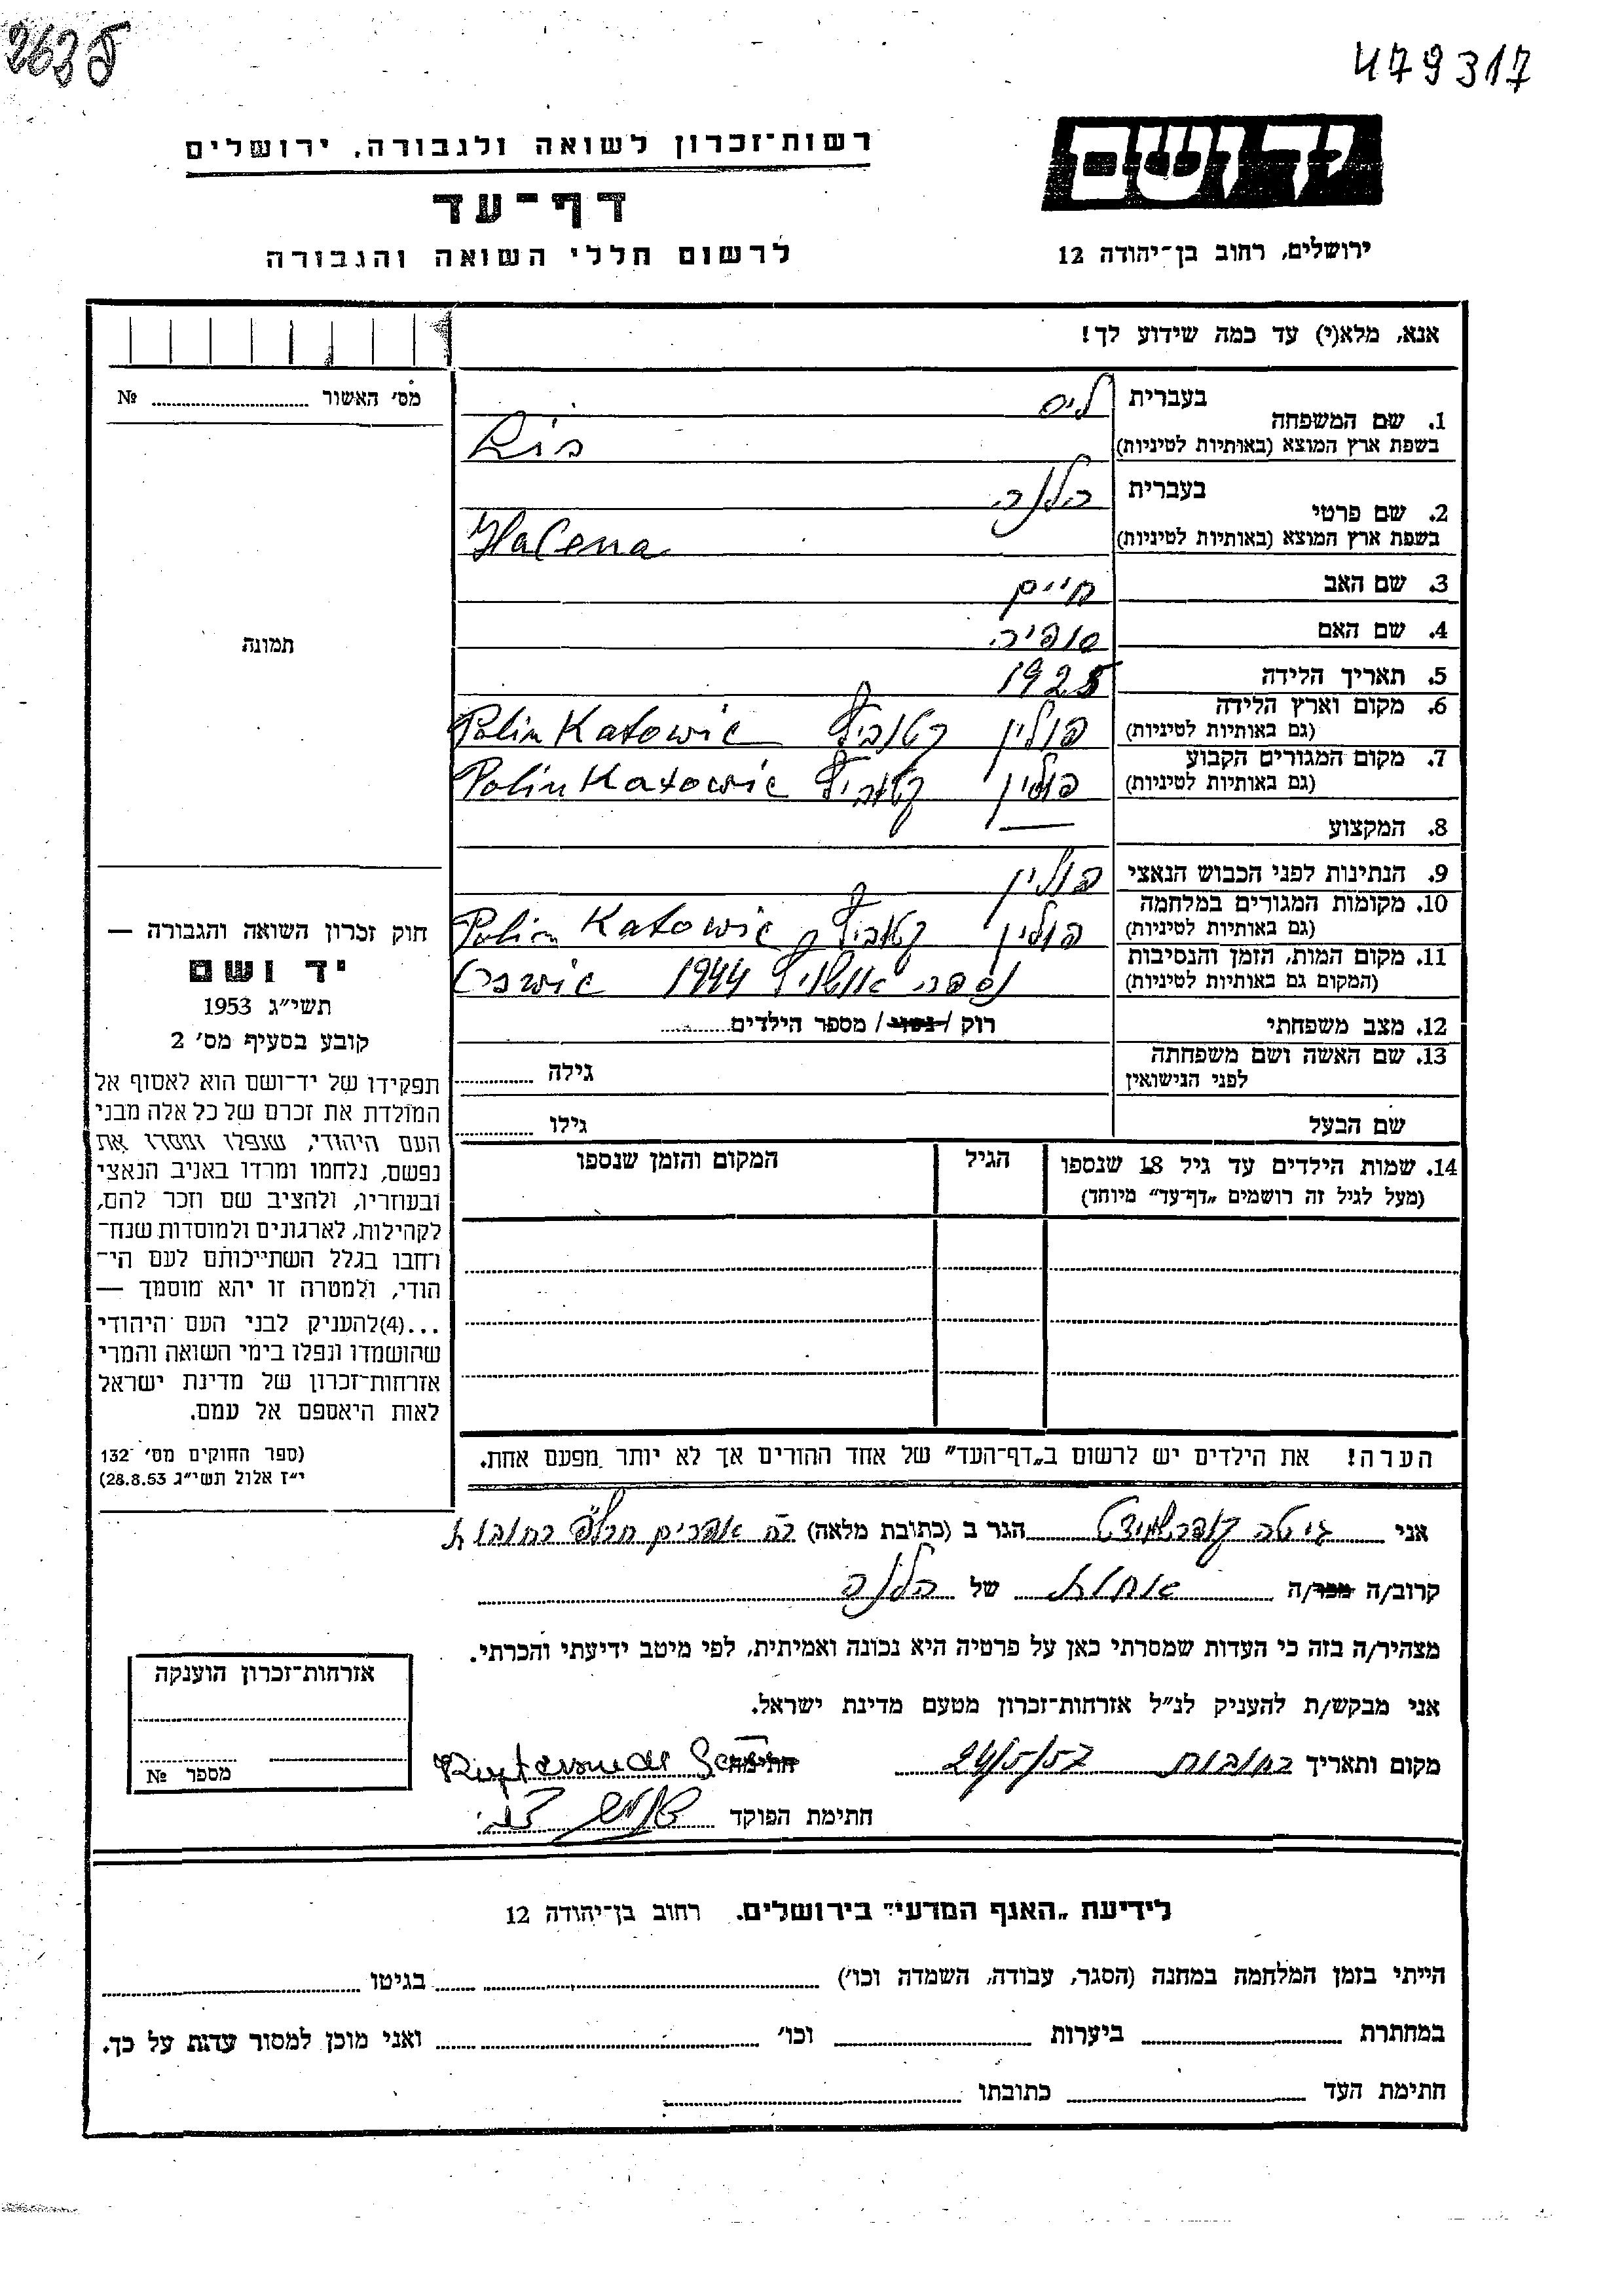 263 479317
רשות־זכרון לשואה ולגבורה, ירושלים
יד ושם
דף־עד
לרשום חללי השואה והגבורה
ירושלים, רחוב בן־יהודה 12
אנא, מלא(י) עד כמה שידוע לך!
מס׳ האשור № 
1. שם המשפחה
בעברית ליס
בשפת ארץ המוצא (באותיות לטיניות) Lis
2. שם פרטי
בעברית הלנה
בשפת ארץ המוצא (באותיות לטיניות) Halena
3. שם האב חיים
4. שם האם סופיה
5. תאריך הלידה 1925
6. מקום וארץ הלידה
(גם באותיות לטיניות) פולין קטוביץ Polin Katowic
7. מקום המגורים הקבוע
(גם באותיות לטיניות) פולין קטוביץ Polin Katowic
8. המקצוע —
9. הנתינות לפני הכבוש הנאצי פולין
10. מקומות המגורים במלחמה
(גם באותיות לטיניות) פולין קטוביץ Polin Katowic
11. מקום המות, הזמן והנסיבות
(המקום גם באותיות לטיניות) נספה אושויץ 1944
12. מצב משפחתי רוק / נשוי / מספר הילדים
13. שם האשה ושם משפחתה
לפני הנישואין גילה
שם הבעל גילו
14. שמות הילדים עד גיל 18 שנספו הגיל המקום והזמן שנספו
(מעל לגיל זה רושמים „דף־עד״ מיוחד)
הערה! את הילדים יש לרשום ב„דף־העד״ של אחד ההורים אך לא יותר מפעם אחת.
תמונה
חוק זכרון השואה והגבורה —
יד ושם
תשי״ג 1953
קובע בסעיף מס׳ 2
תפקידו של יד־ושם הוא לאסוף אל
המולדת את זכרם של כל אלה מבני
העם היהודי, שנפלו ומסרו את
נפשם, נלחמו ומרדו באויב הנאצי
ובעוזריו, ולהציב שם וזכר להם,
לקהילות, לארגונים ולמוסדות שנח־
רחבו בגלל השתייכותם לעם הי־
הודי, ולמטרה זו יהא מוסמך —
...(4)להעניק לבני העם היהודי
שהושמדו ונפלו בימי השואה והמרי
אזרחות־זכרון של מדינת ישראל
לאות היאספם אל עמם.
(ספר החוקים מס׳ 132
י״ז אלול תשי״ג 28.8.53)
אני הגר ב (כתובת מלאה) רחובות
קרוב/ה מכר/ה אחות של הלנה
מצהיר/ה בזה כי העדות שמסרתי כאן על פרטיה היא נכונה ואמיתית, לפי מיטב ידיעתי והכרתי.
אני מבקש/ת להעניק לנ״ל אזרחות־זכרון מטעם מדינת ישראל.
מקום ותאריך רחובות 24/5/57 חתימה
חתימת הפוקד
אזרחות־זכרון הוענקה
מספר №
לידיעת „האגף המדעי״ בירושלים. רחוב בן־יהודה 12
הייתי בזמן המלחמה במחנה (הסגר, עבודה, השמדה וכו׳) בגיטו
במחתרת ביערות וכו׳ ואני מוכן למסור עדות על כך.
חתימת העד כתובתו